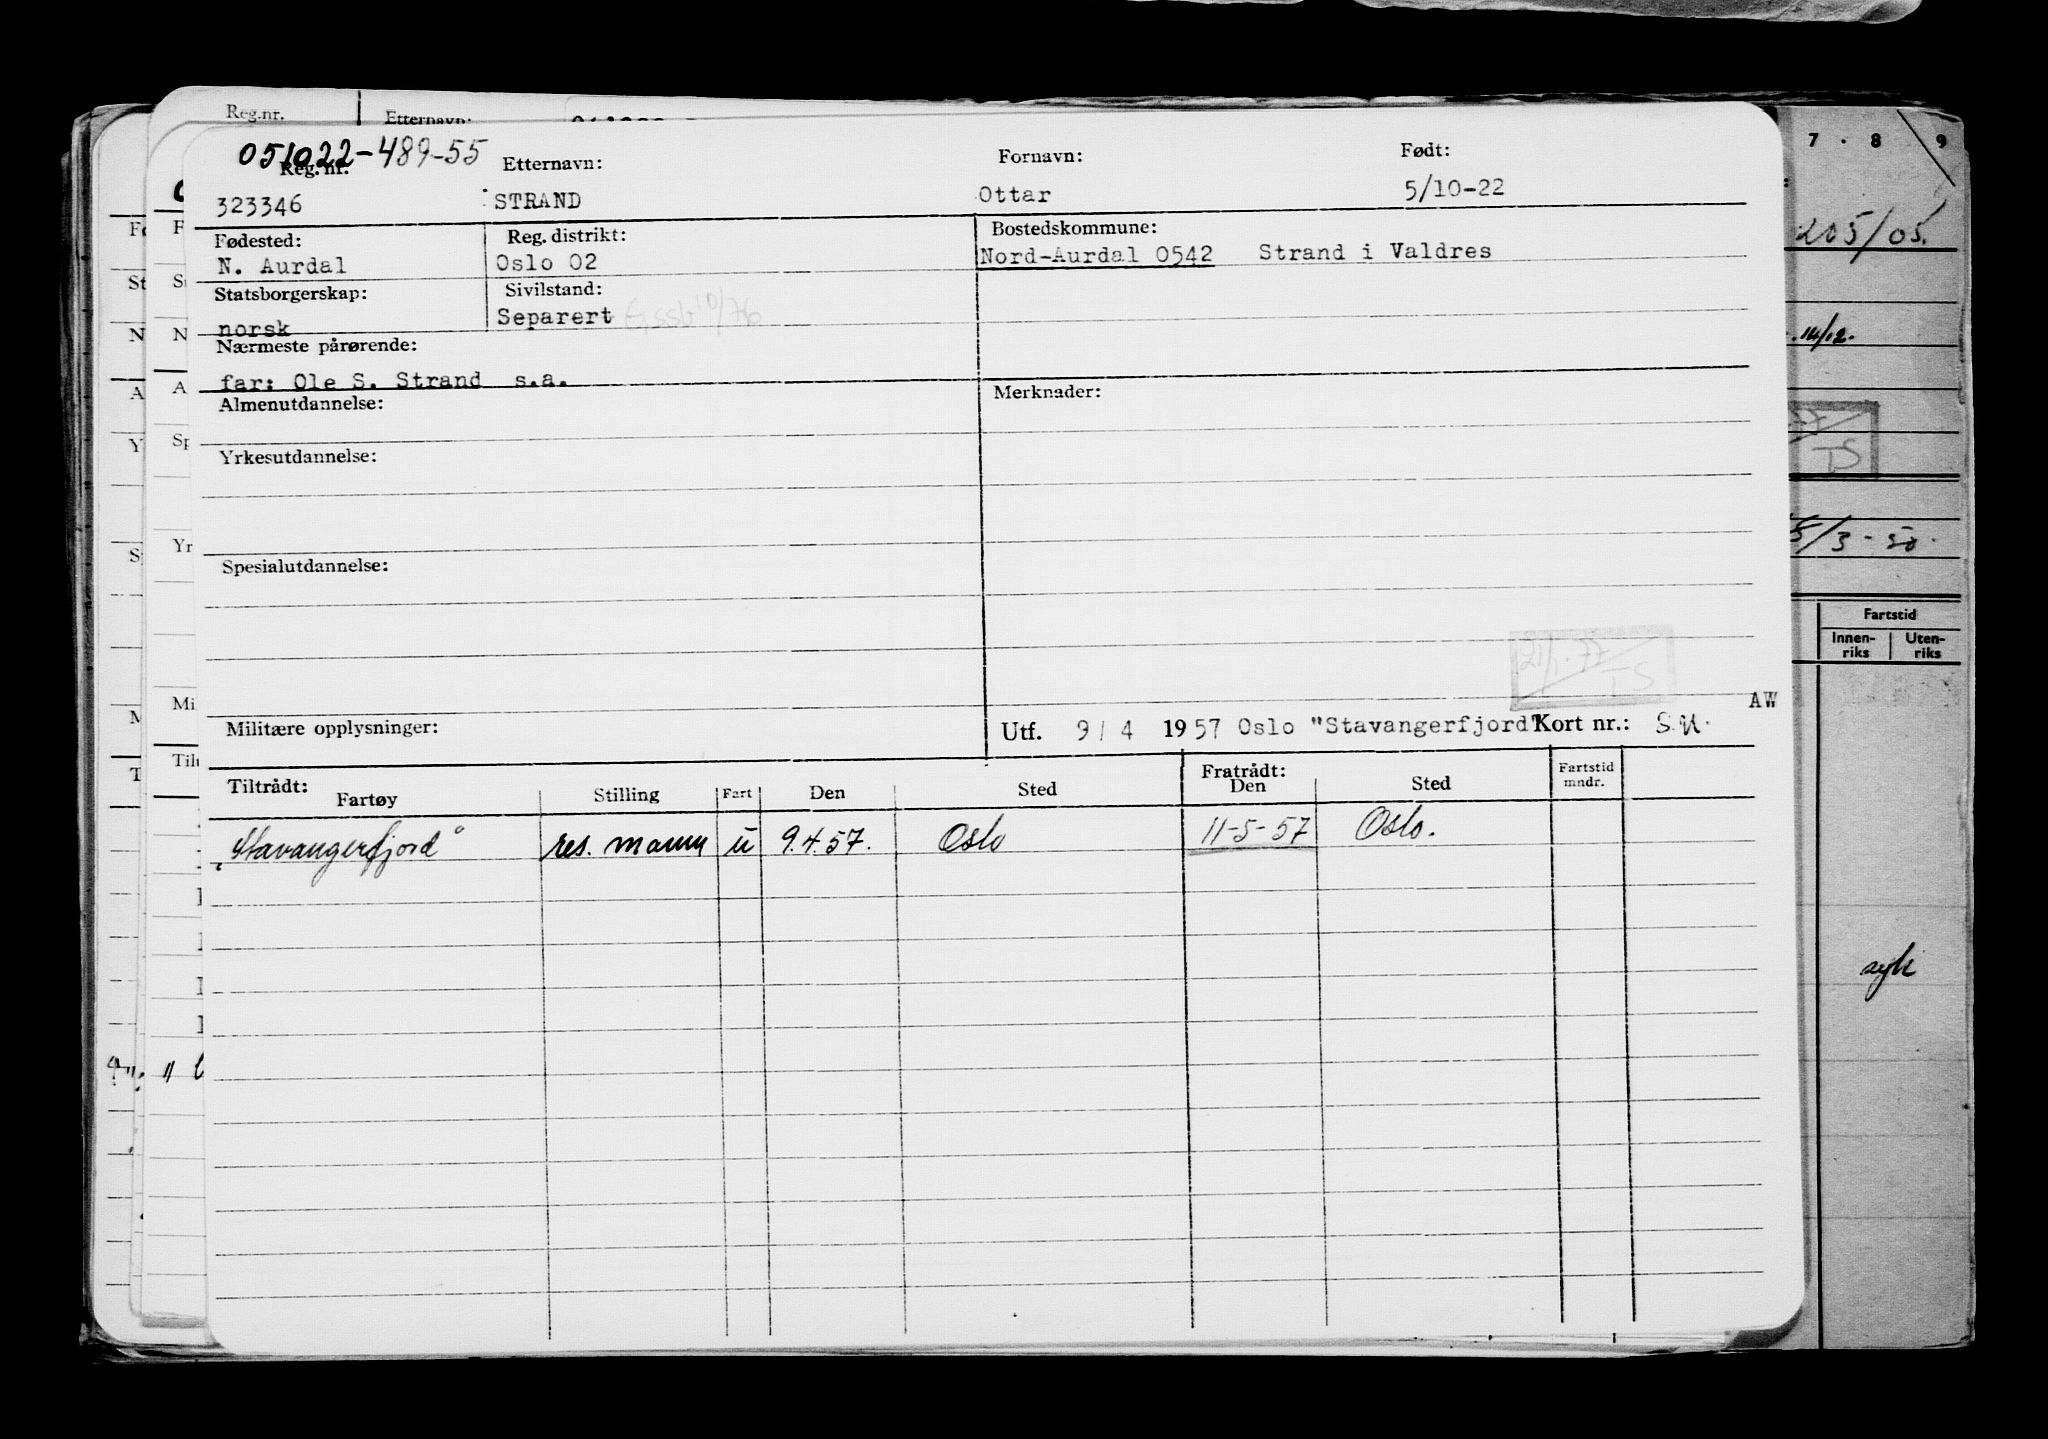 Reg.nr.
Etternavn:
051022-489-55
Reg. nr.
Etternavn:
Fornavn:
Født:
323346
STRAND
Ottar
5/10-22
Fødested:
Reg. distrikt:
Bostedskommune:
N. Aurdal
Oslo 02
Nord-Aurdal 0542 Strand i Valdres
Statsborgerskap:
Sivilstand:
norsk
Separert
Nærmeste pårørende:
far: Ole S. Strand s.a.
Almenutdannelse:
Merknader:
Yrkesutdannelse:
Spesialutdannelse:
21/1.77
TS
AW
Militære opplysninger:
Utf. 9/4 1957 Oslo "Stavangerfjord" Kort nr.: S.U.
Tiltrådt:
Fratrådt:
Fartøy
Stilling
Fart
Den
Sted
Den
Sted
Fartstid
mndr.
"Stavangerfjord"
res. mann
u
9.4.57.
Oslo
11-5-57
Oslo.
7 . 8 9
205/05.
14/12.
TS
5/3-50.
Fartstid
Innen-
riks
Uten-
riks